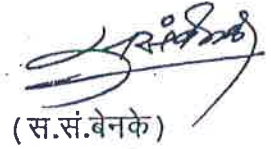 (स.सं.बेनके)